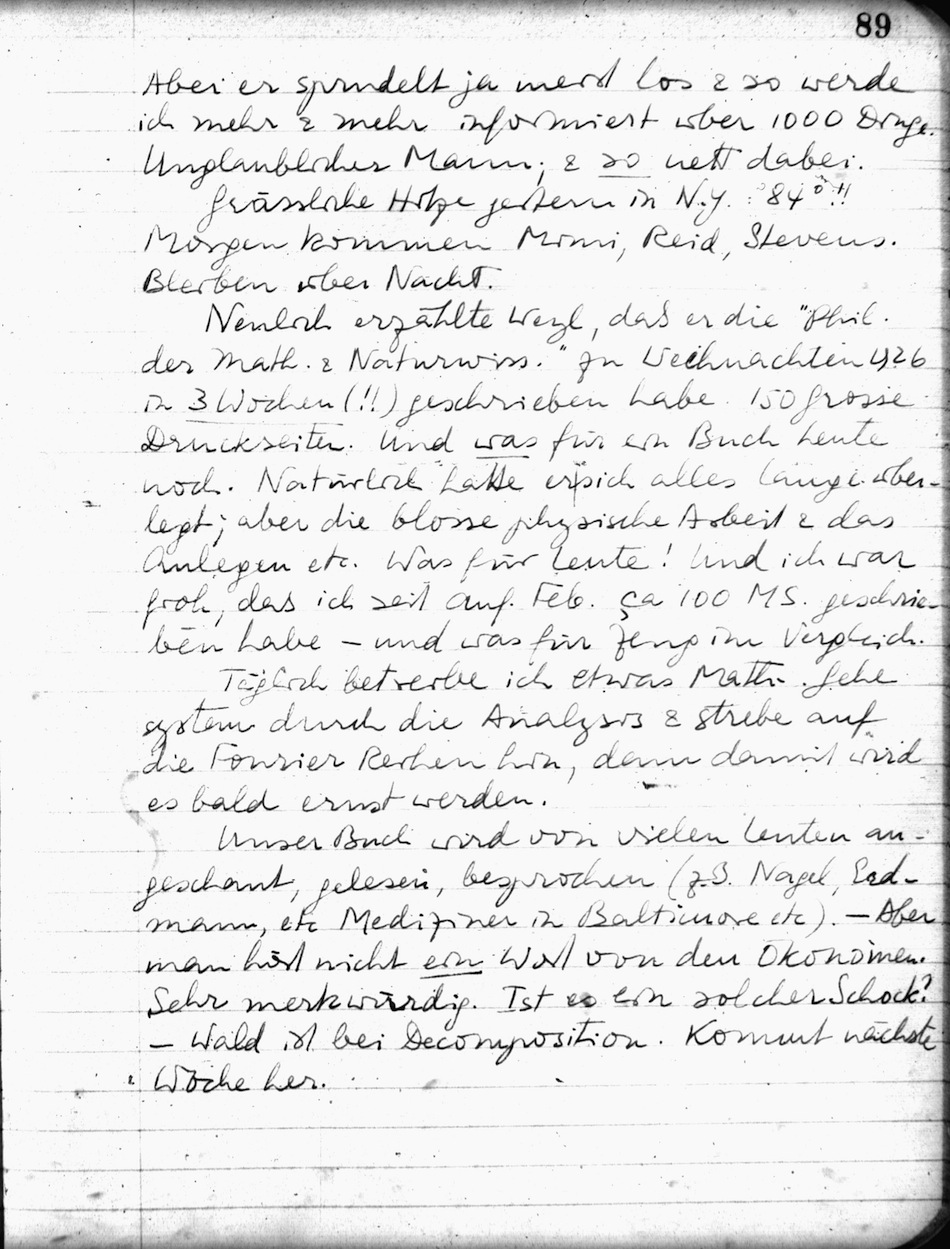 89
Aber er sprudelt ja meist los & so werde
ich mehr & mehr informiert über 1000 Dinge.
Unglaublicher Mann; & so nett dabei.
Grässliche Hitze gestern in N.Y. : 84°!!
Morgen kommen Mimi, Reid, Stevens.
Bleiben über Nacht.
Neulich erzählte Weyl, daß er die "Phil.
der Math. & Naturwiss." zu Weihnachten 1926
in 3 Wochen (!!) geschrieben habe. 150 grosse
Druckseiten. Und was für ein Buch heute
noch. Natürlich hatte er sich alles lange über-
legt; aber die blosse physische Arbeit & das
Anlegen etc. Was für Leute! Und ich war
froh, das ich seit Anf. Feb. ca 100 MS. geschrie-
ben habe – und was für Zeug im Vergleich.
Täglich betreibe ich etwas Math. Gehe
system durch die Analysis & strebe auf
die Fourier Reihen hin, denn damit wird
es bald ernst werden.
Unser Buch wird von vielen Leuten an-
geschaut, gelesen, besprochen (z.B. Nagel,
mann, etc Mediziner in Baltimore etc). – Aber
man hört nicht ein Wort von den Ökonomen.
Sehr merkwürdig. Ist es ein solcher Schock?
– Wald ist bei Decomposition. Kommt nächste
Woche her.